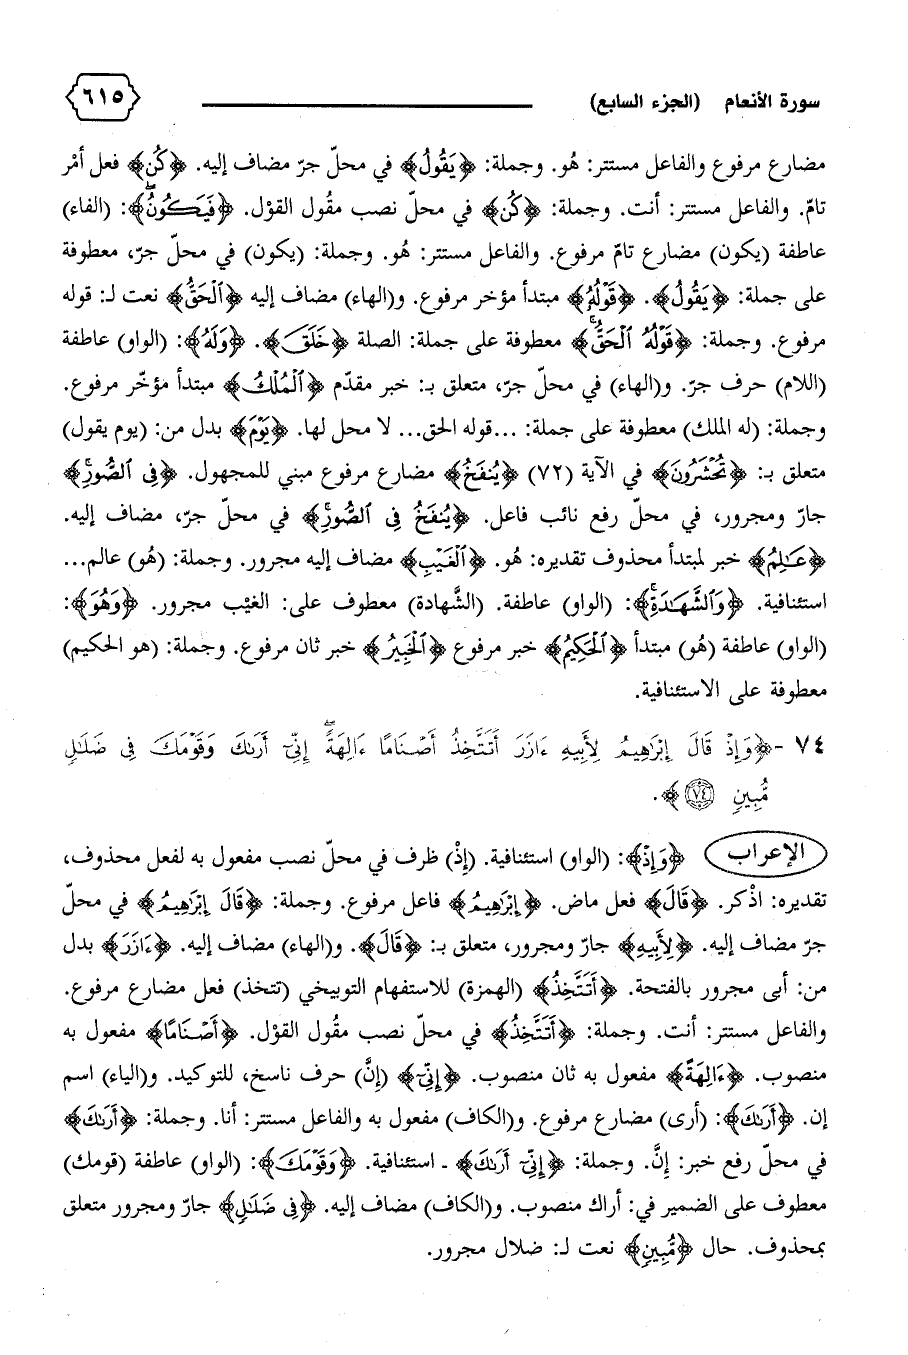 سورة الأنعام (الجزء السابع) ٦١٥
مضارع مرفوع والفاعل مستتر: هُو. وجملة: ﴿يَقُولُ﴾ في محلّ جرّ مضاف إليه. ﴿كُن﴾ فعل أمْر
تامّ. والفاعل مستتر: أنت. وجملة: ﴿كُن﴾ في محلّ نصب مقُول القوْل. ﴿فَيَكُونُ﴾: (الفاء)
عاطفة (يكون) مضارع تامّ مرفوع. والفاعل مستتر: هُو. وجملة: (يكون) في محلّ جرّ، معطوفة
على جملة: ﴿يَقُولُ﴾. ﴿قَوْلُهُ﴾ مبتدأ مؤخر مرفوع. و(الهاء) مضاف إليه ﴿ٱلْحَقُّ﴾ نعت لـ: قوله
مرفوع. وجملة: ﴿قَوْلُهُ ٱلْحَقُّ﴾ معطوفة على جملة: الصلة ﴿خَلَقَ﴾. ﴿وَلَهُ﴾: (الواو) عاطفة
(اللام) حرف جرّ. و(الهاء) في محلّ جرّ، متعلق بـ: خبر مقدّم ﴿ٱلْمُلْكُ﴾ مبتدأ مؤخّر مرفوع.
وجملة: (له الملك) معطوفة على جملة: ...قوله الحق... لا محل لها. ﴿يَوْمَ﴾ بدل من: (يوم يقول)
متعلق بـ: ﴿تُحْشَرُونَ﴾ في الآية (٧٢) ﴿يُنفَخُ﴾ مضارع مرفوع مبني للمجهول. ﴿فِى ٱلصُّورِ﴾
جارّ ومجرور، في محلّ رفع نائب فاعل. ﴿يُنفَخُ فِى ٱلصُّورِ﴾ في محلّ جرّ، مضاف إليه.
﴿عَـٰلِمُ﴾ خبر لمبتدأ محذوف تقديره: هُو. ﴿ٱلْغَيْبِ﴾ مضاف إليه مجرور. وجملة: (هُو) عالم...
استئنافية. ﴿وَٱلشَّهَـٰدَةِ﴾: (الواو) عاطفة. (الشَّهادة) معطوف على: الغيْب مجرور. ﴿وَهُوَ﴾:
(الواو) عاطفة (هُو) مبتدأ ﴿ٱلْحَكِيمُ﴾ خبر مرفوع ﴿ٱلْخَبِيرُ﴾ خبر ثان مرفوع. وجملة: (هو الحكيم)
معطوفة على الاستئنافية.
٧٤ -﴿وَإِذْ قَالَ إِبْرَٰهِيمُ لِأَبِيهِ ءَازَرَ أَتَتَّخِذُ أَصْنَامًا ءَالِهَةً إِنِّىٓ أَرَىٰكَ وَقَوْمَكَ فِى ضَلَـٰلٍ
مُّبِينٍ ٧٤﴾.
الإعراب ﴿وَإِذْ﴾: (الواو) استئنافية. (إذْ) ظرف في محلّ نصب مفعول به لفعل محذوف،
تقديره: اذْكر. ﴿قَالَ﴾ فعل ماض. ﴿إِبْرَٰهِيمُ﴾ فاعل مرفوع. وجملة: ﴿قَالَ إِبْرَٰهِيمُ﴾ في محلّ
جرّ مضاف إليه. ﴿لِأَبِيهِ﴾ جارّ ومجرور، متعلق بـ: ﴿قَالَ﴾. و(الهاء) مضاف إليه. ﴿ءَازَرَ﴾ بدل
من: أبى مجرور بالفتحة. ﴿أَتَتَّخِذُ﴾ (الهمزة) للاستفهام التوبيخي (تتخذ) فعل مضارع مرفوع.
والفاعل مستتر: أنت. وجملة: ﴿أَتَتَّخِذُ﴾ في محلّ نصب مقُول القوْل. ﴿أَصْنَامًا﴾ مفعول به
منصوب. ﴿ءَالِهَةً﴾ مفعول به ثان منصوب. ﴿إِنِّىٓ﴾ (إنَّ) حرف ناسخ، للتوكيد. و(الياء) اسم
إن. ﴿أَرَىٰكَ﴾: (أرى) مضارع مرفوع. و(الكاف) مفعول به والفاعل مستتر: أنا. وجملة: ﴿أَرَىٰكَ﴾
في محلّ رفع خبر: إنَّ. وجملة: ﴿إِنِّىٓ أَرَىٰكَ﴾ - استئنافية. ﴿وَقَوْمَكَ﴾: (الواو) عاطفة (قومك)
معطوف على الضمير في: أراك منصوب. و(الكاف) مضاف إليه. ﴿فِى ضَلَـٰلٍ﴾ جارّ ومجرور متعلق
بمحذوف. حال ﴿مُّبِينٍ﴾ نعت لـ: ضلال مجرور.